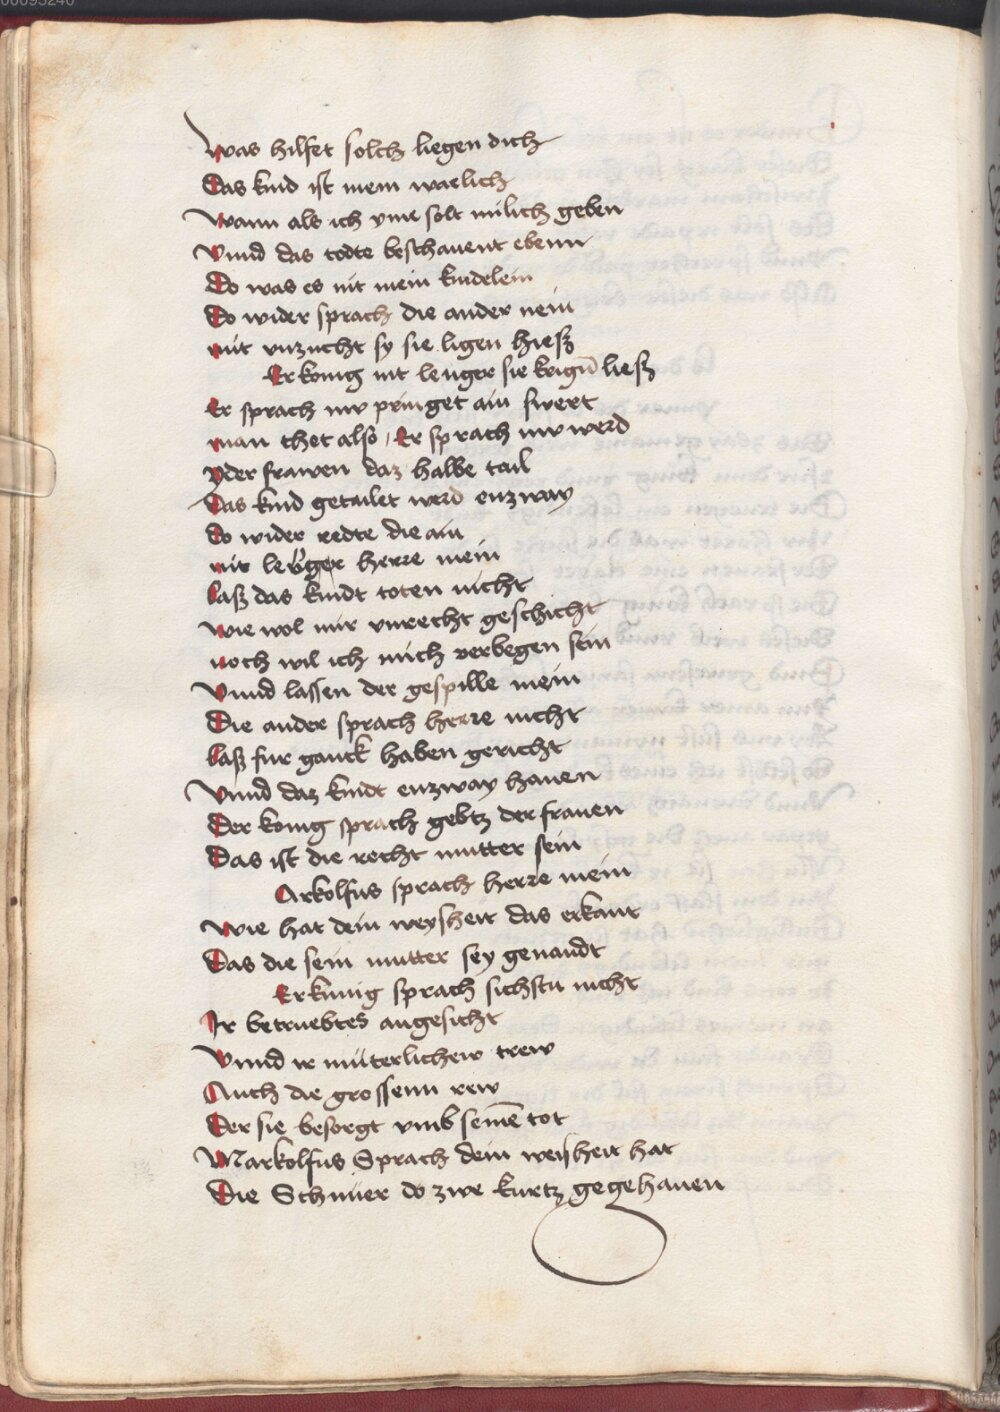 Was hilfet solch liegen dich
Das kind ist mein warlich
Wann als ich yme solt milich geben
Vnnd das todte beschauent ebenn
Do was es nit mein kindelein
Do wider sprach die ander nein
mit vnzucht sy sie ligen hiesz
Er konig nit lenger sie krigñ liesz
Er sprach nw pringet ain swert
man thet also / Er sprach nw werd
yder frawen daz halbe tail
Das kind getailet werd enzway
do wider redte die ain
nit herre mein
lasz das kindt toten nicht
wie wol mir vnrecht geschicht
noch wil ich mich verbegen sein
Vnnd lassen der gespille mein
Die ander sprach herre nicht
lasz fur ganck haben gericht
Vnnd daz kindt enzway hauen
Der konig sprach gebtz der frauen
Das ist die recht mutter sein
Arkolfus sprach herre mein
wie hat dein weysheit das erkant
Das die sein mutter sey genandt
Er kunig sprach sichstu nicht
Ir betruebtes angesicht
Vnnd ir müterlichew trew
Auch die grossenn rew
Der sie besorgt vmb seinē tot
Markolfus Sprach dein weisheit hat
Die Schnüer do zwe kurtz gegehauen